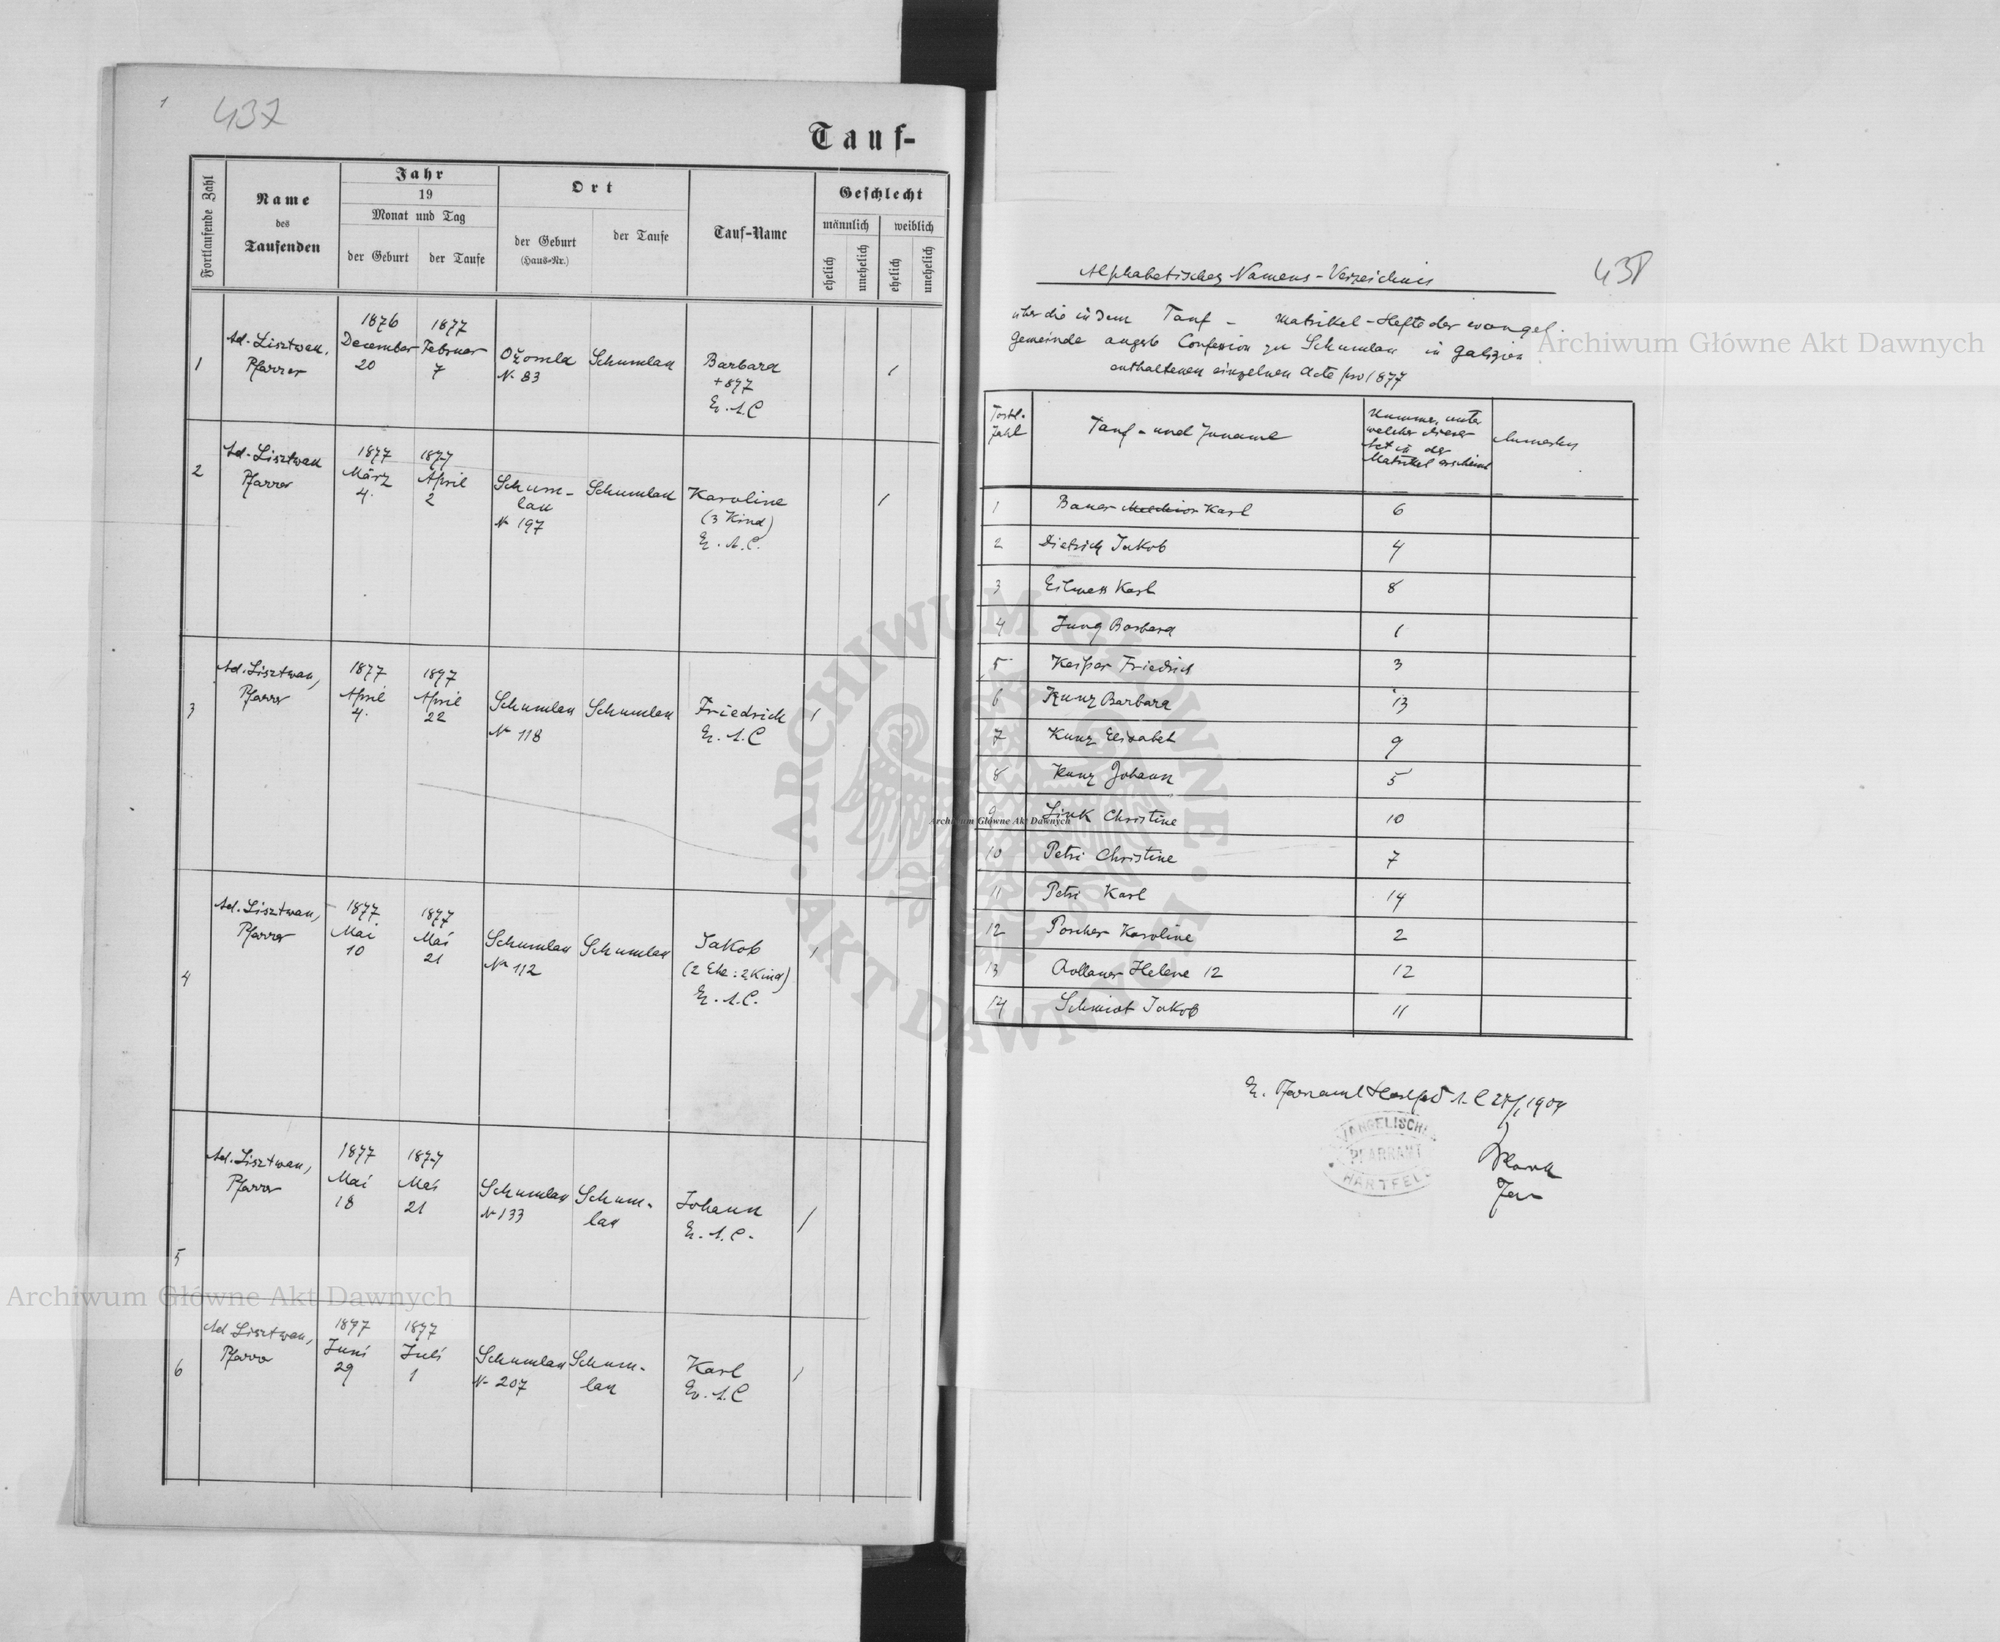 1
437
Tauf-
Fortlaufende Zahl
Name
des
Taufenden
Jahr
19
Monat und Tag
der Geburt
der Taufe
Ort
der Geburt
(Haus-Nr.)
der Taufe
Tauf-Name
Geschlecht
männlich
weiblich
ehelich
unehelich
ehelich
unehelich
1
Ad. Lisztwan,
Pfarrer
1876
December
20
1877
Februar
7
Ożomla
N. 83
Schumlau
Barbara
+ 877
E. A. C
1
2
Ad. Lisztwan
Pfarrer
1877
März
4.
1877
April
2
Schum-
lau
N 197
Schumlau
Karoline
(3 Kind)
E. A. C.
1
3
Ad. Lisztwan,
Pfarrer
1877
April
4.
1877
April
22
Schumlau
N 118
Schumlau
Friedrich
E. A. C
1
4
Ad. Lisztwan,
Pfarrer
1877
Mai
10
1877
Mai
21
Schumlau
N 112
Schumlau
Jakob
(2 Ehe: 2 Kind)
E. A. C.
1
5
Ad. Lisztwan,
Pfarrer
1877
Mai
18
1877
Mai
21
Schumlau
N 133
Schum-
lau
Johann
E. A. C.
1
6
Ad Lisztwan,
Pfarrer
1877
Juni
29
1877
Juli
1
Schumlau
N. 207
Schum-
lau
Karl
Ev. A. C
1
438
Alphabetisches Namens-Verzeichnis
über die in dem Tauf - Matrikel-Hefte der evangel.
Gemeinde augsb Confession zu Schumlau in Galizien
enthaltenen einzelnen Acte pro 1877
Fortl.
Zahl
Tauf- und Zuname
Nummer, unter
welcher dieser
Act in der
Matrikel erscheint
1 Bauer Melchior Karl 6
2 Dietrich Jakob 4
3 Karl 8
4 Jung Barbara 1
5 Keiper Friedrich 3
6 Kunz Barbara 13
7 Kunz Elisabet 9
8 Kunz Johann 5
9 Link Christine 10
10 Petri Christine 7
11 Petri Karl 14
12 Porcher Karoline 2
13 Rollauer Helene 12 12
14 Schmidt Jakob 11
E. Pfarramt Hartfeld 1904
EVANGELISCHES
PFARRAMT
HARTFELD
Archiwum Główne Akt Dawnych
Archiwum Główne Akt Dawnych
Archiwum Główne Akt Dawnych
ARCHIWUM GŁÓWNE AKT DAWNYCH